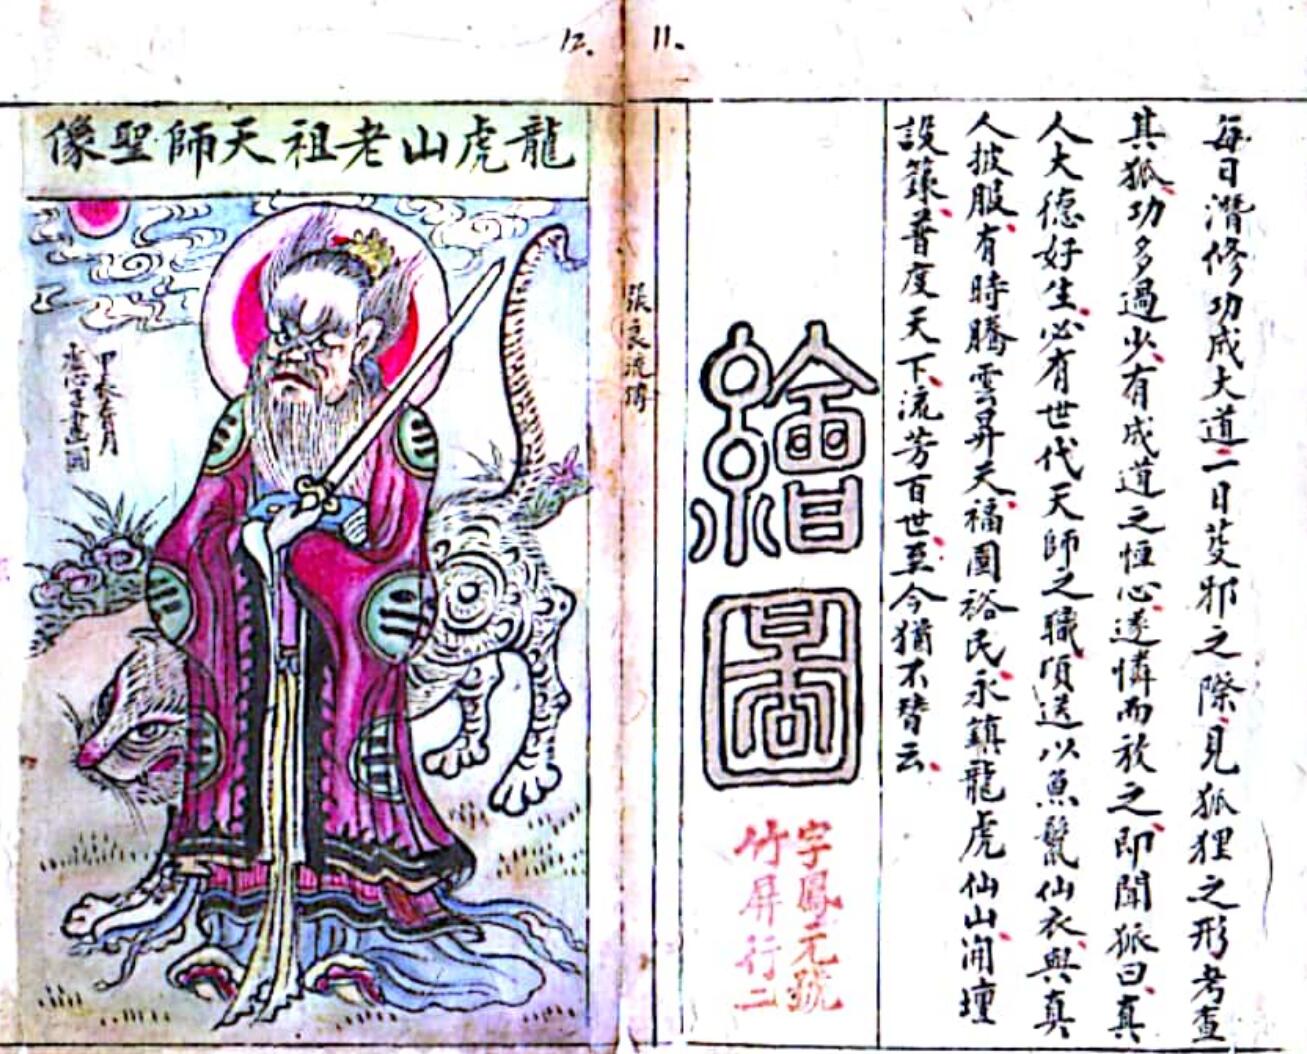 11.
每日潛修功成大道一日芟邪之際見狐狸之形考查
其狐功多過少有成道之恒心遂憐而放之即聞狐曰真
人大德好生必有世代天師之職項送以魚鬣仙衣與真
人披服有時騰雲昇天福國裕民永鎮龍虎仙山開壇
設籙普度天下流芳百世至今猶不替云
繪圖
字鳳元號
竹屏行二
張良流傳
12.
龍虎山老祖天師聖像
甲辰春月
虛心子畫圖